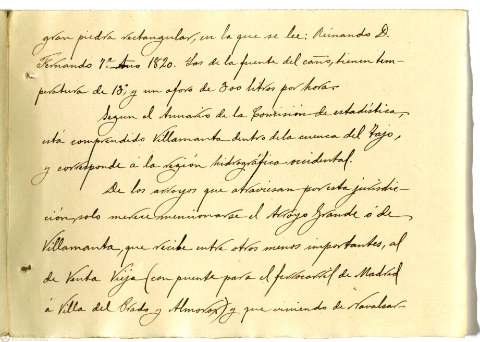 gran piedra rectangular, en la que se lee: Reinando D.
Fernando 7º Año 1820. Las de la fuente del caño, tienen tem-
peratura de 13º, y un aforo de 300 litros por hora.
Segun el Anuario de la Comision de estadística,
está comprendido Villamanta dentro de la cuenca del Tajo,
y corresponde á la región hidrográfica occidental.
De los arroyos que atraviesan por esta jurisdic-
ción, solo merece mencionarse el Arroyo Grande ó de
Villamanta, que recibe entre otros menos importantes, al
de Venta Vieja (con puente para el ferrocarril de Madrid
á Villa del Prado y Almorox) y que viniendo de Navalcar-